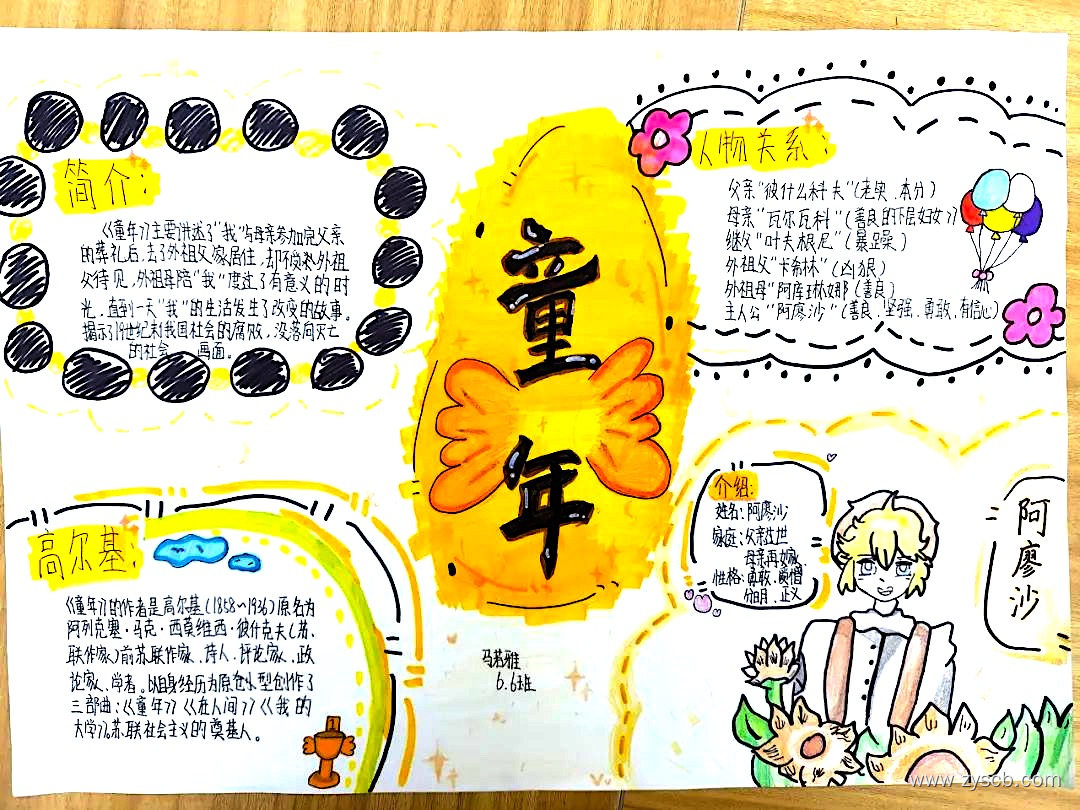 童年
简介:
《童年》主要讲述了"我"与母亲参加完父亲
的葬礼后,去了外祖父家居住,却不受外祖
父待见,外祖母陪"我"度过了有意义的时
光,直到一天"我"的生活发生了改变的故事。
揭示19世纪末我国社会的腐败,没落向灭亡
的社会 画面。
人物关系:
父亲"彼什么科夫"(老实、本分)
母亲"瓦尔瓦科"(善良的下层妇女)
继父"叶夫根尼"(暴躁)
外祖父"卡俞林"(凶狠)
外祖母"阿库琳娜"(善良)
主人公"阿廖沙"(善良、坚强、勇敢、有信心)
高尔基:
《童年》的作者是高尔基(1858~1936)原名为
阿列克塞·马克·西莫维西·彼什克夫(苏
联作家)前苏联作家、诗人、评论家、政
论家、学者。以自身经历为原色小型创作了
三部曲:《童年》《在人间》《我的
大学》苏联社会主义的奠基人。
介绍:
姓名:阿廖沙
家庭:父亲去世
母亲再嫁
性格:勇敢、爱憎
分明、正义
阿廖沙
马若雅
6.6班
www.zyscb.com